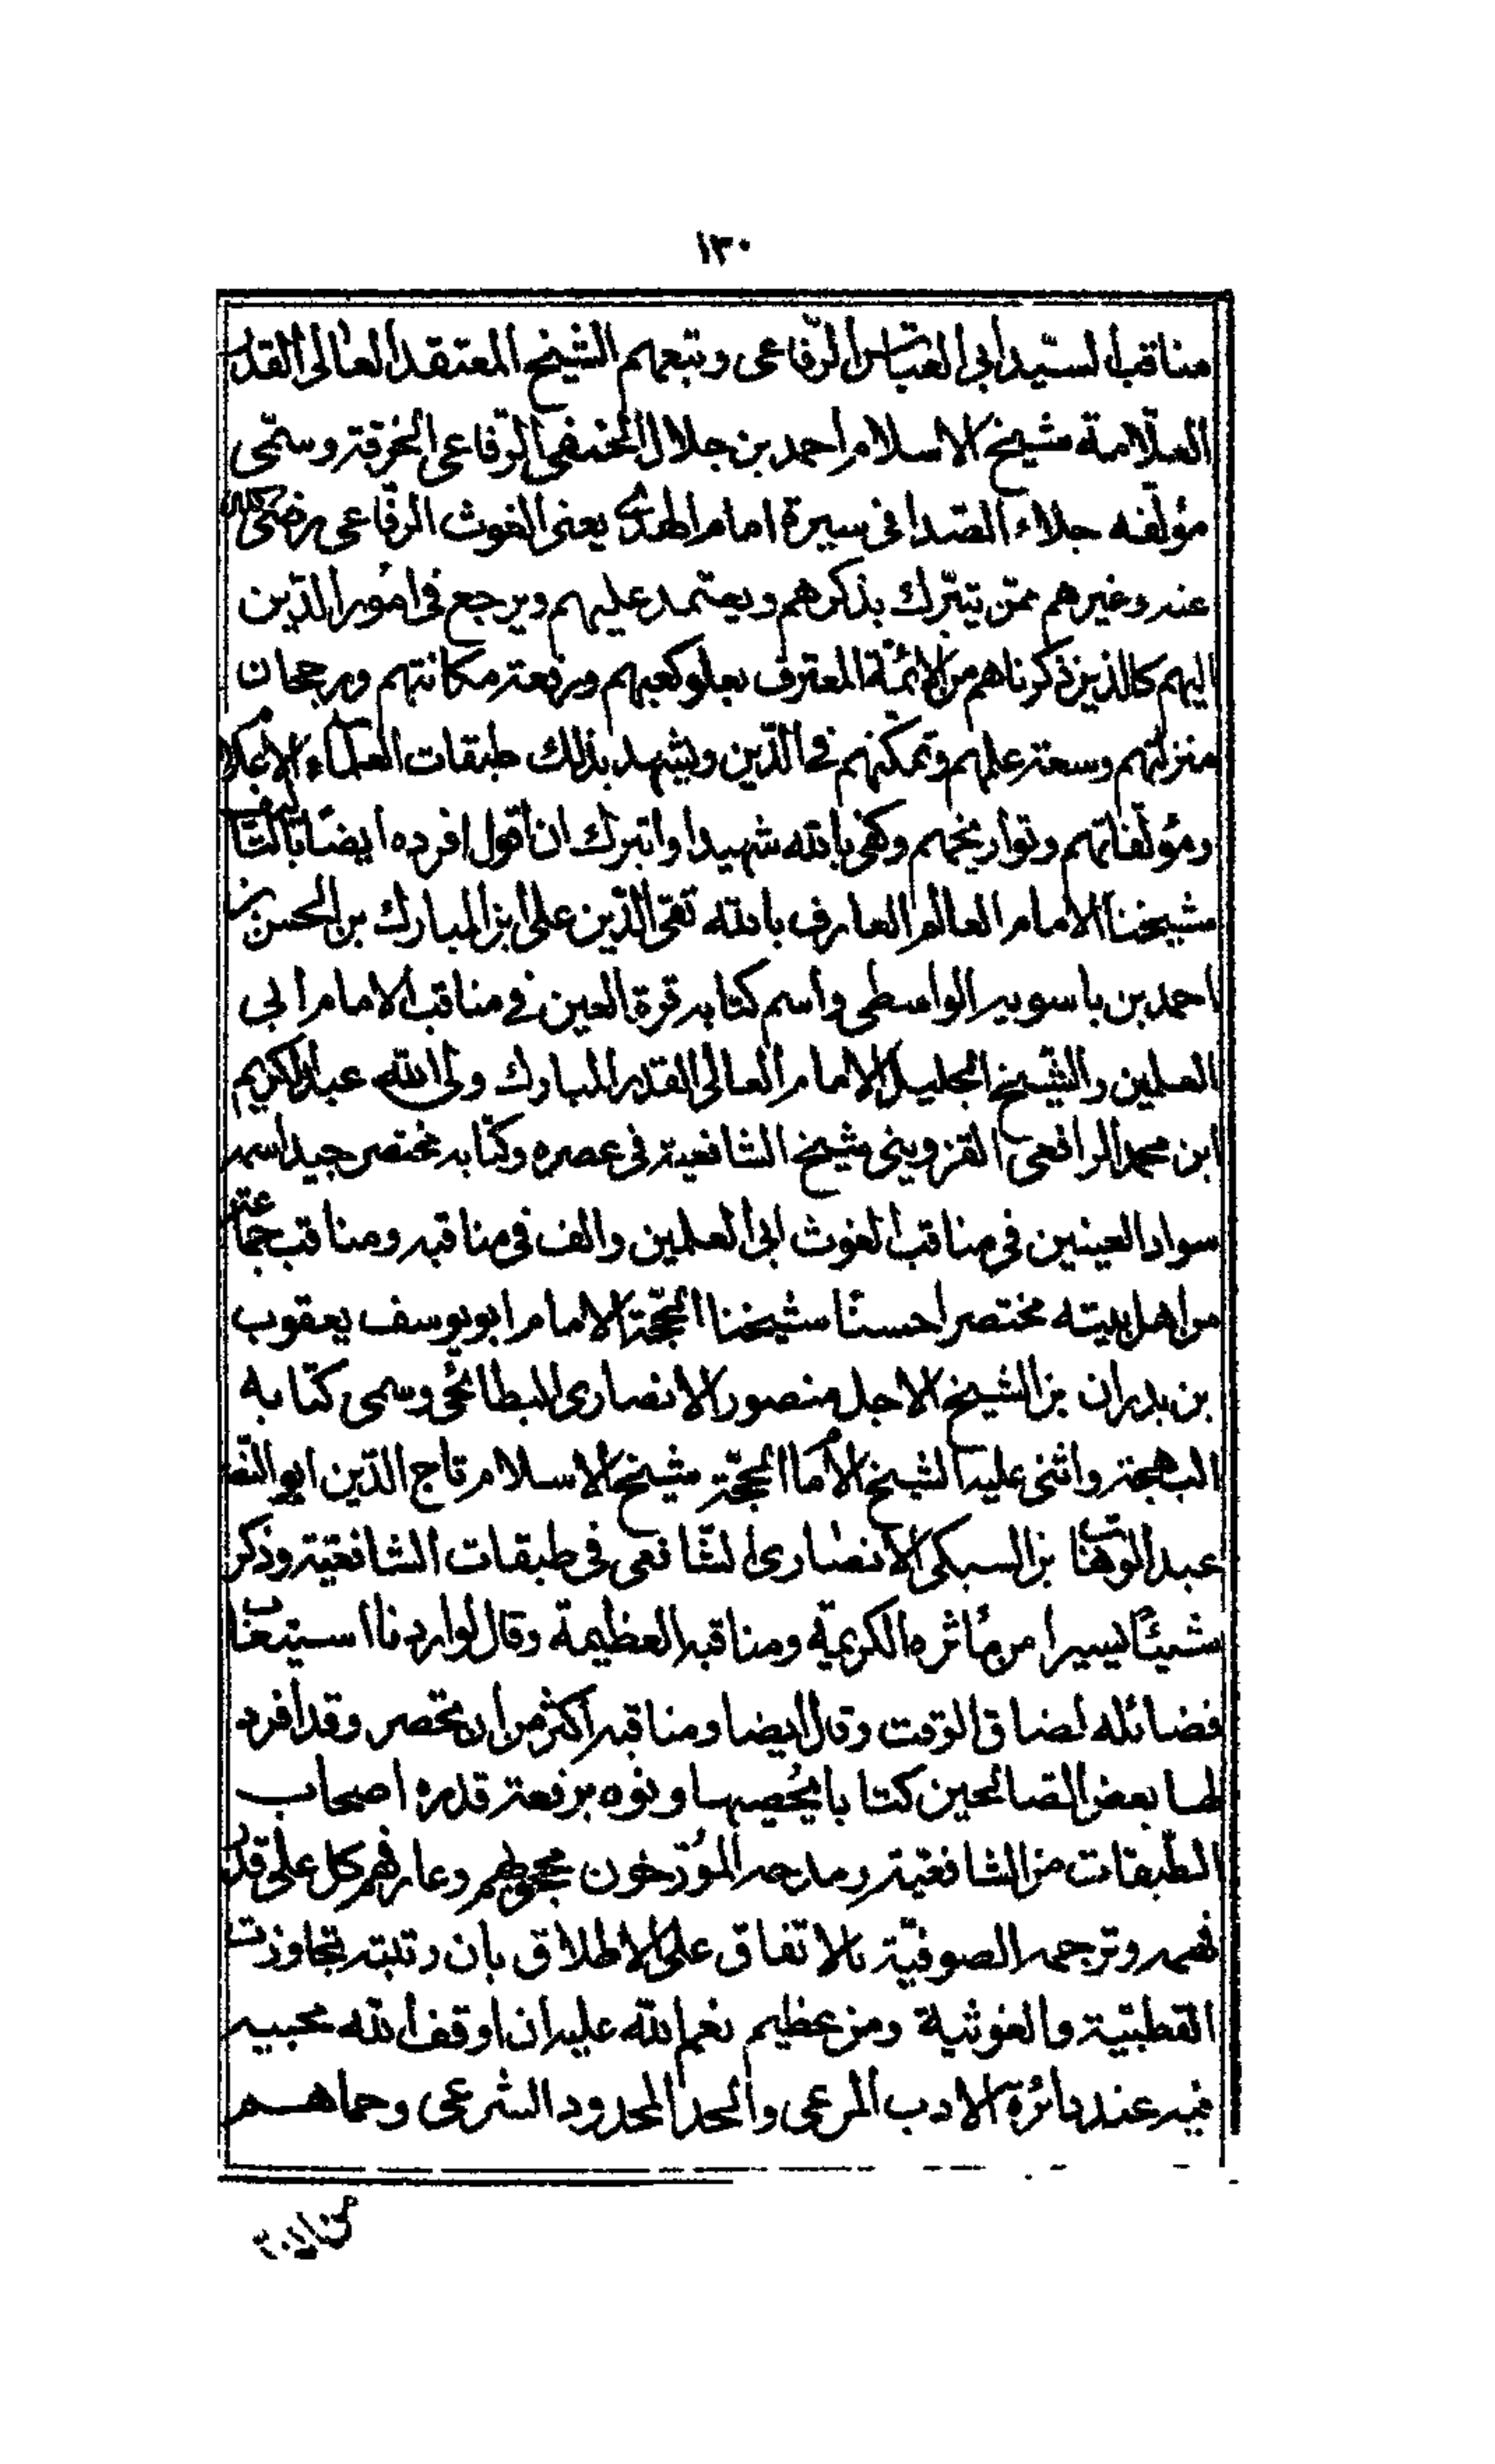 ١٣٠
مناقب السيد ابي العباس الرفاعى وتبعهم الشيخ المعتقد العالى القدر
العلّامة شيخ الاسلام احمد بن جلال الحنفى الرفاعى الخرقة وسمّى
مؤلفه جلاء الصدا فى سيرة امام الهدى يعنى الغوث الرفاعى رضى الله
عنه وغيرهم ممّن يتبرّك بذكرهم ويعتمد عليهم ويرجع فى امُور الدّين
اليهم كالذين ذكرناهم من الائمّة المعترف بعلو كعبهم ورفعة مكانتهم ورجحان
منزلتهم وسعة علمهم وتمكنهم فى الدّين ويشهد بذلك طبقات العلماء الاعلام
ومؤلفاتهم وتواريخهم وكفى بالله شهيدا واتبرك ان اقول افرده ايضًا بالتاليف
شيخنا الامام العالم العارف بالله تقى الدّين على ابن المبارك بن الحسن بن
احمد بن باسويه الواسطى واسم كتابه قرة العين فى مناقب الامام ابى
العلمين والشيخ الجليل الامام العالى القدر المبارك ولى الله عبد الكريم
ابن محمد الرافعى القزوينى شيخ الشافعية فى عصره وكتابه مختصر جيد اسمه
سواد العينين فى مناقب الغوث ابى العلمين والف فى مناقبه ومناقب جماعة
من اهل بيته مختصرا حسنًا شيخنا الحجّة الامام ابو يوسف يعقوب
بن بدران بن الشيخ الاجل منصور الانصارى البطائحى وسمى كتابه
البهجة واثنى عليه الشيخ الامام الحجّة شيخ الاسلام تاج الدّين ابو النصر
عبد الوهاب بن السبكى الانصارى الشافعى فى طبقات الشافعية وذكر
شيئًا يسيرا من مأثره الكريمة ومناقبه العظيمة وقال لو اردنا استيعاب
فضائله لضاق الوقت وقال ايضا ومناقبه اكثر من ان تحصر وقد افرد
لها بعض الصالحين كتابا يُحصيها ونوه برفعة قدره اصحاب
الطبقات من الشافعية ومدحه المؤرّخون محجوبهم وعارفهم كل على قدر
فهمه وترجمه الصوفيّة بالاتفاق على الاطلاق بان رتبته تجاوزت
القطبيّة والغوثية ومن عظيم نعم الله عليه ان اوقف الله محبيه
فيه عند دائرة الادب المرعى والحد المحدود الشرعى وحماهم